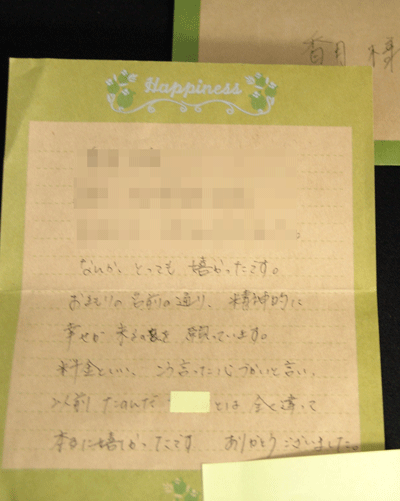 香月 様
Happiness
なんか、とっても 嬉かったです。
おまもりの名前の通り、精神的に
幸せが 来る事を 願っています。
料金といい、こう言った心づかいと言い、
以前 たのんだ とは 全く違って
本当に嬉しかったです ありがとうございました。